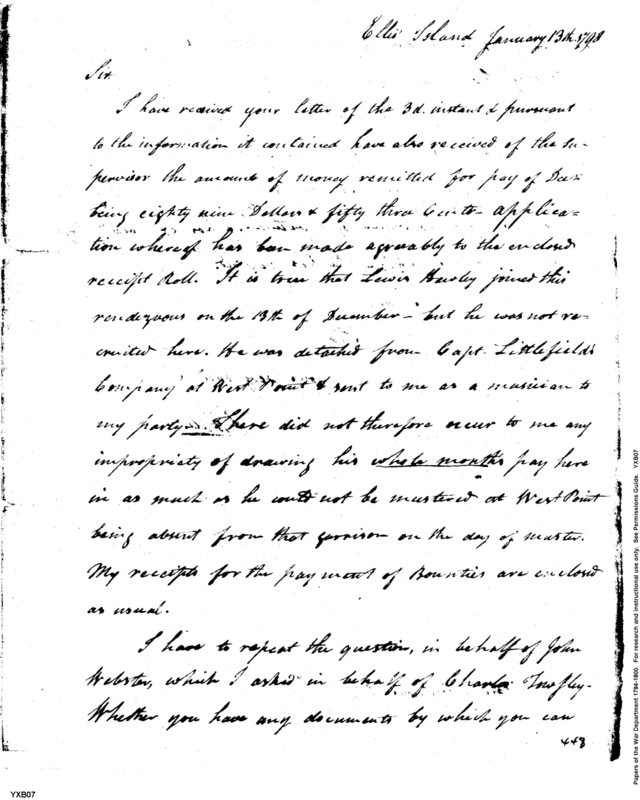 Ellis Island January 13th 1798
Sir
I have received your letter of the 3d. instant & pursuant
to the information it contained have also received of the Su-
pervisor the amount of money remitted for pay of Decr.
being eighty nine Dollars & fifty three Cents - applica-
tion whereof has been made agreeably to the enclosed
receipt Roll. It is true that Lewis Hurley joined this
rendezvous on the 13th of December - but he was not re-
cruited here. He was detached from Capt. Littlefield's
Company at West Point & sent to me as a musician to
my party. There did not therefore occur to me any
impropriety of drawing his whole months pay here
in as much as he could not be mustered at West Point
being absent from that garrison on the day of muster.
My receipts for the payment of Bounties are enclosed
as usual.
I have to repeat the question, in behalf of John
Webster, which I asked in behalf of Charles
Whether you have any documents by which you can
448
YXB07
Papers of the War Department 1784-1800. For research and instructional use only. See Permissions Guide. YXB07